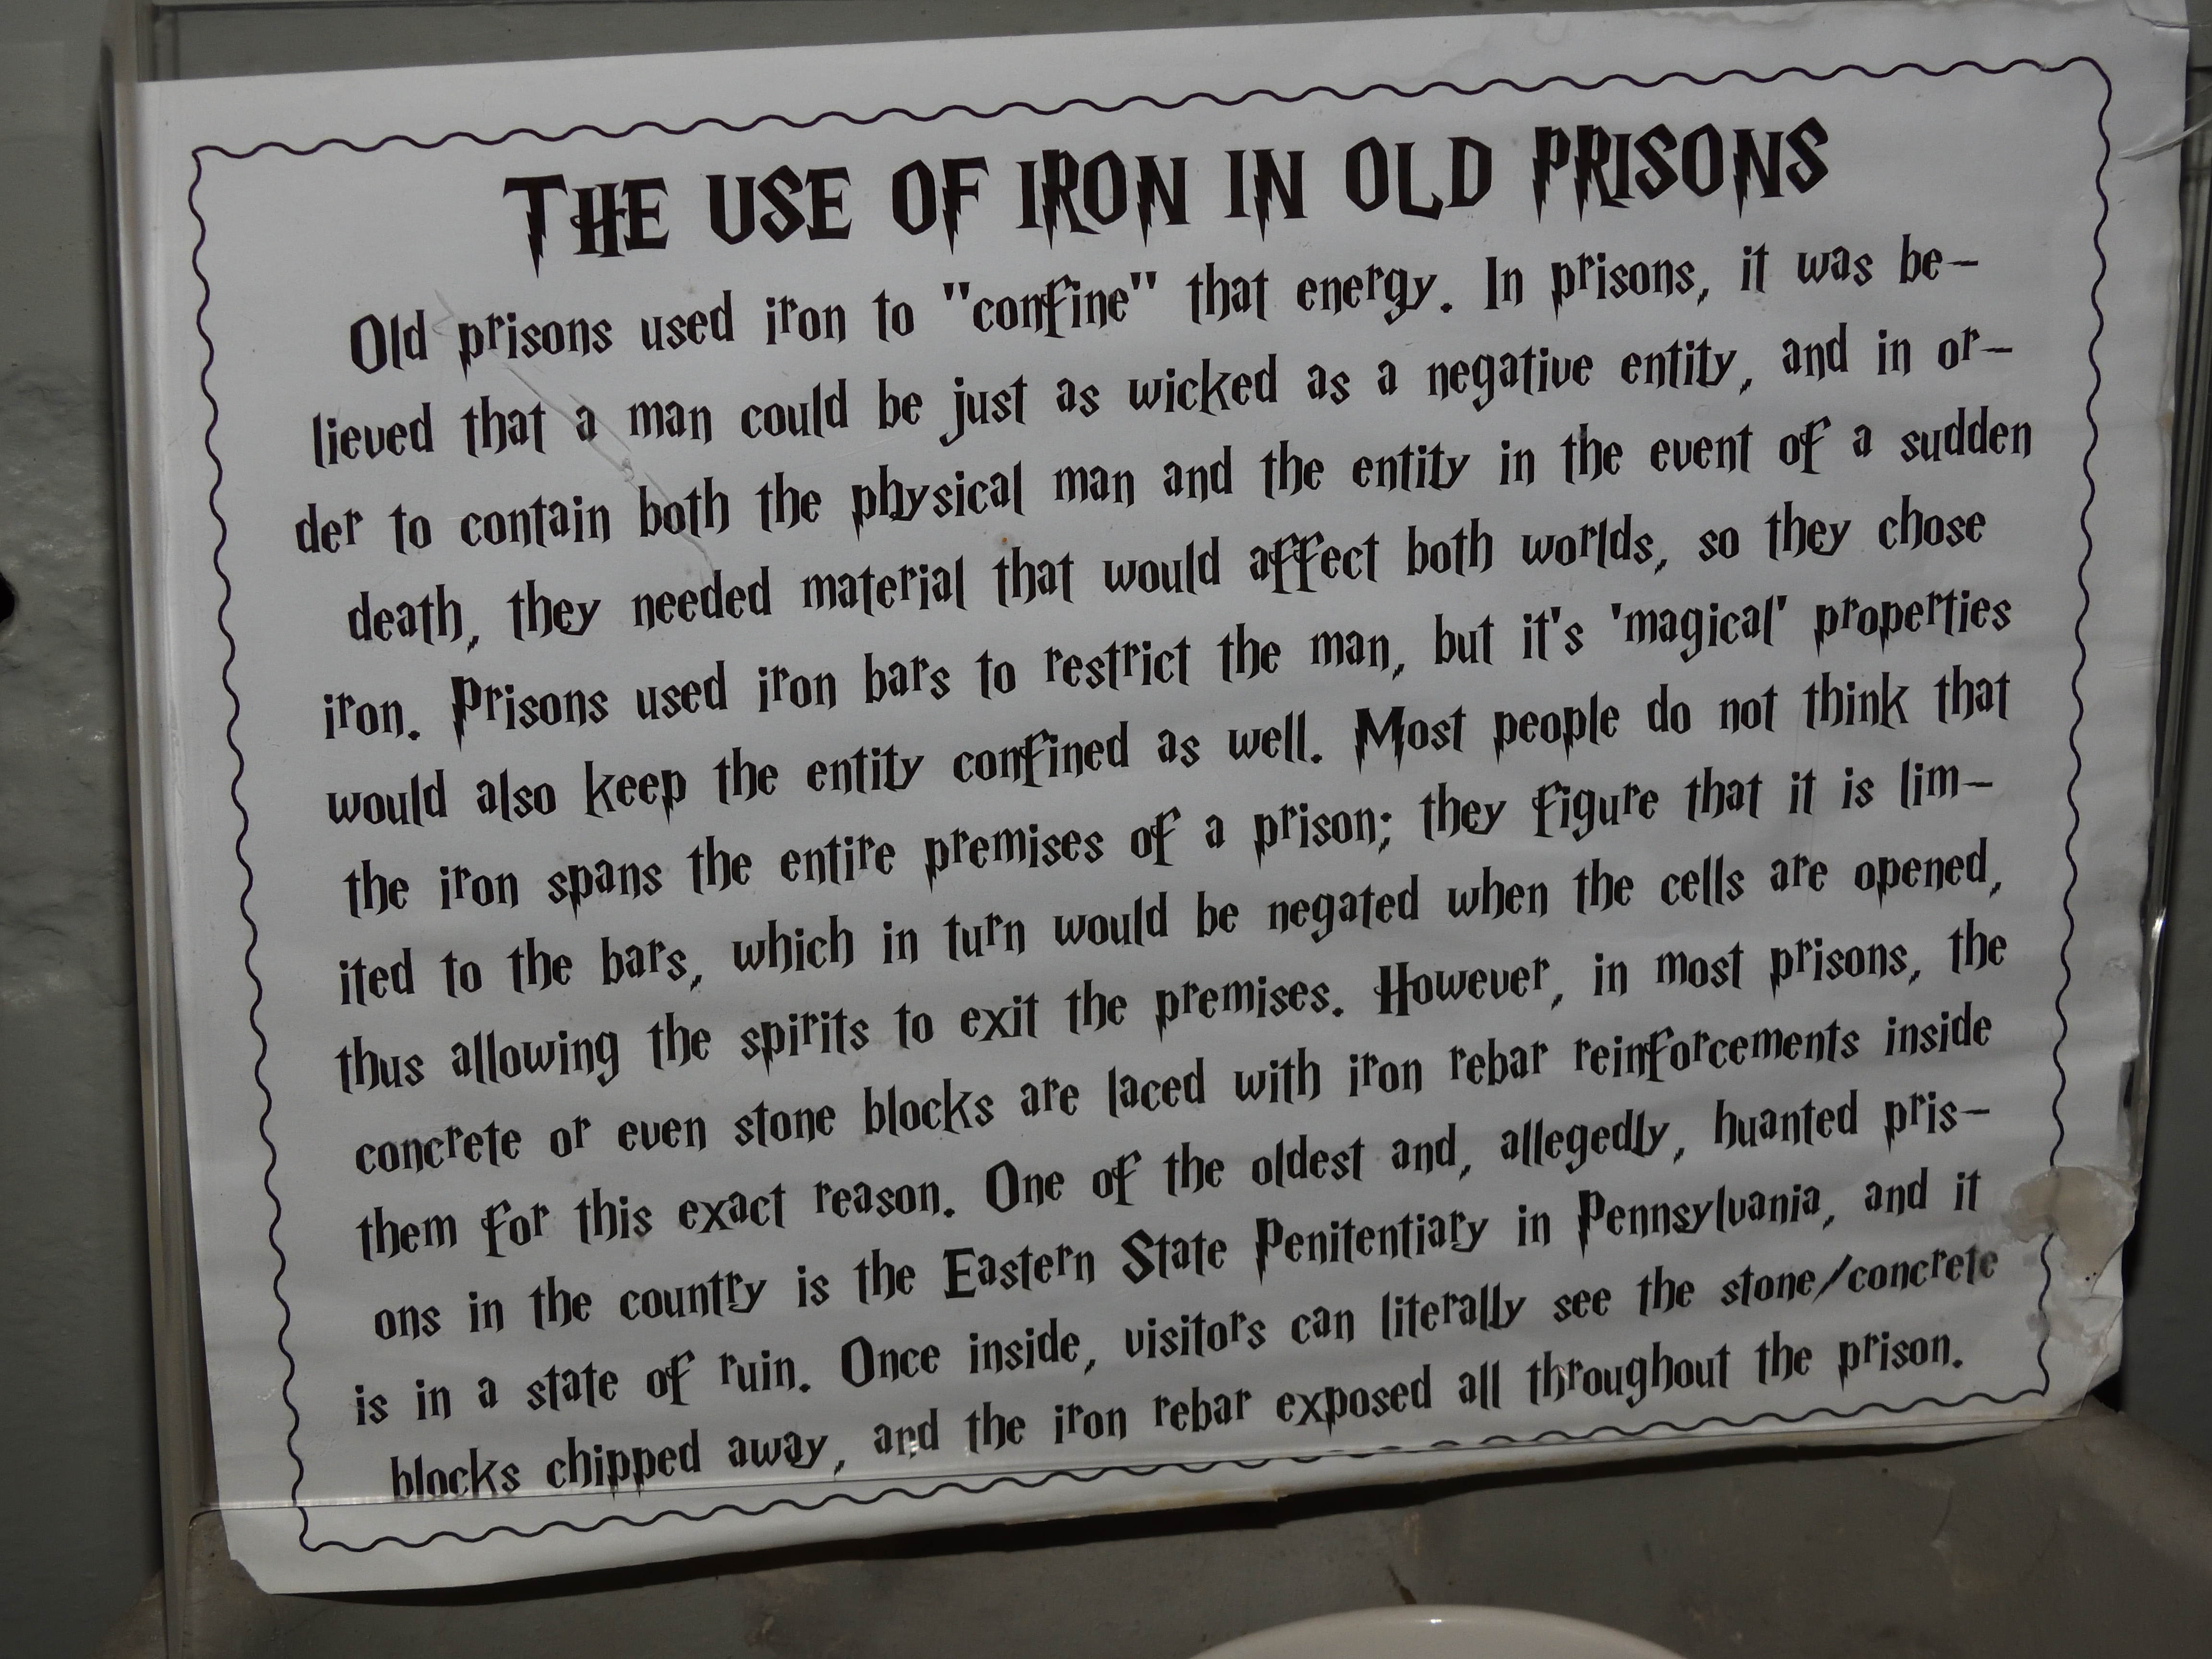 THE USE OF IRON IN OLD PRISONS
Old prisons used iron to "confine" that energy. In prisons, it was be-
lieved that a man could be just as wicked as a negative entity, and in or-
der to contain both the physical man and the entity in the event of a sudden
death, they needed material that would affect both worlds, so they chose
iron. Prisons used iron bars to restrict the man, but it's 'magical' properties
would also keep the entity confined as well. Most people do not think that
the iron spans the entire premises of a prison; they figure that it is lim-
ited to the bars, which in turn would be negated when the cells are opened,
thus allowing the spirits to exit the premises. However, in most prisons, the
concrete or even stone blocks are laced with iron rebar reinforcements inside
them for this exact reason. One of the oldest and, allegedly, huanted pris-
ons in the country is the Eastern State Penitentiary in Pennsylvania, and it
is in a state of ruin. Once inside, visitors can literally see the stone/concrete
blocks chipped away, and the iron rebar exposed all throughout the prison.